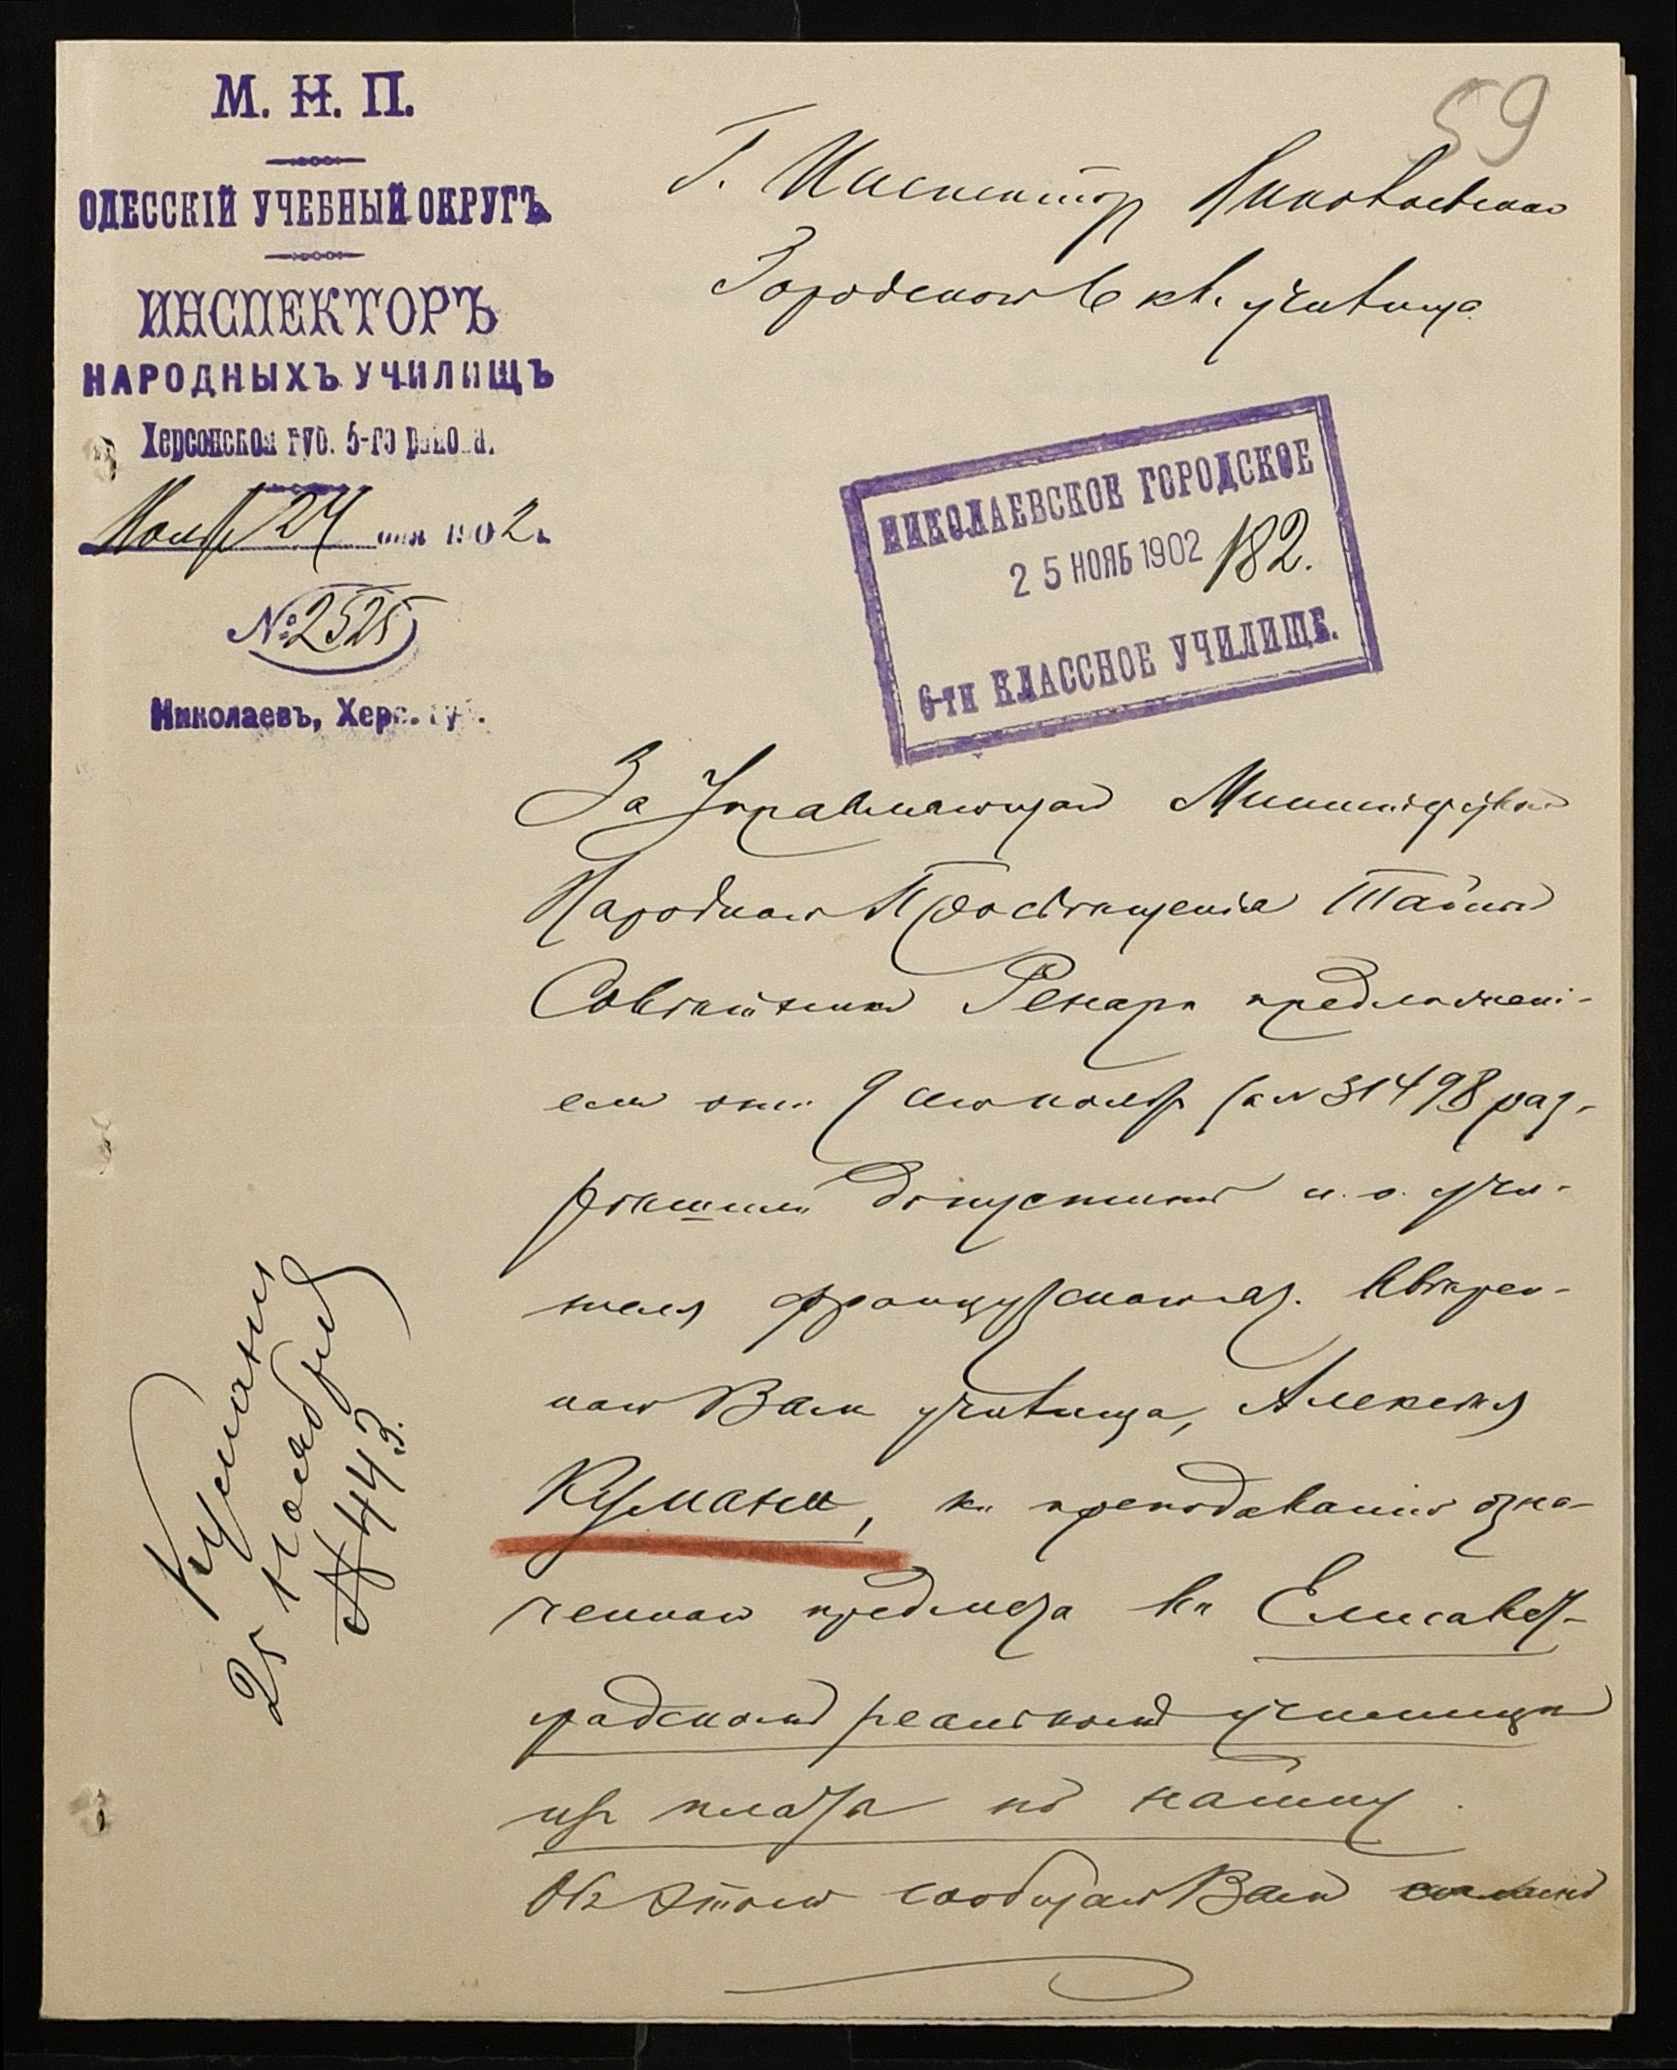 М. Н. П.
ОДЕССКІЙ УЧЕБНЫЙ ОКРУГЪ
ИНСПЕКТОРЪ
НАРОДНЫХЪ УЧИЛИЩЪ
Херсонской губ. 5-го района.
Ноябр 24 дня 1902 г.
№ 2525
Николаевъ, Херс. губ.
59
Г. Инспектор Николаевскаго
Городского 6 кл. училища
НИКОЛАЕВСКОЕ ГОРОДСКОЕ
25 НОЯБ 1902 182.
6-ти КЛАССНОЕ УЧИЛИЩЕ.
За Управляющаго Министерством
Народнаго Просвѣщенія Тайный
Совѣтникъ Ренаръ предложені-
емъ отъ 9 сего ноябр за № 31498 раз-
рѣшилъ допустить и. о. учи-
теля французскаго яз. ввѣрен-
наго Вамъ училища, Алексѣя
Кумани, къ преподаванію озна-
ченнаго предмета въ Елисавет-
градскомъ реальномъ училищѣ
изъ платы по найму.
Объ этомъ сообщаю Вамъ
Кумани
25 Ноября
№ 443.